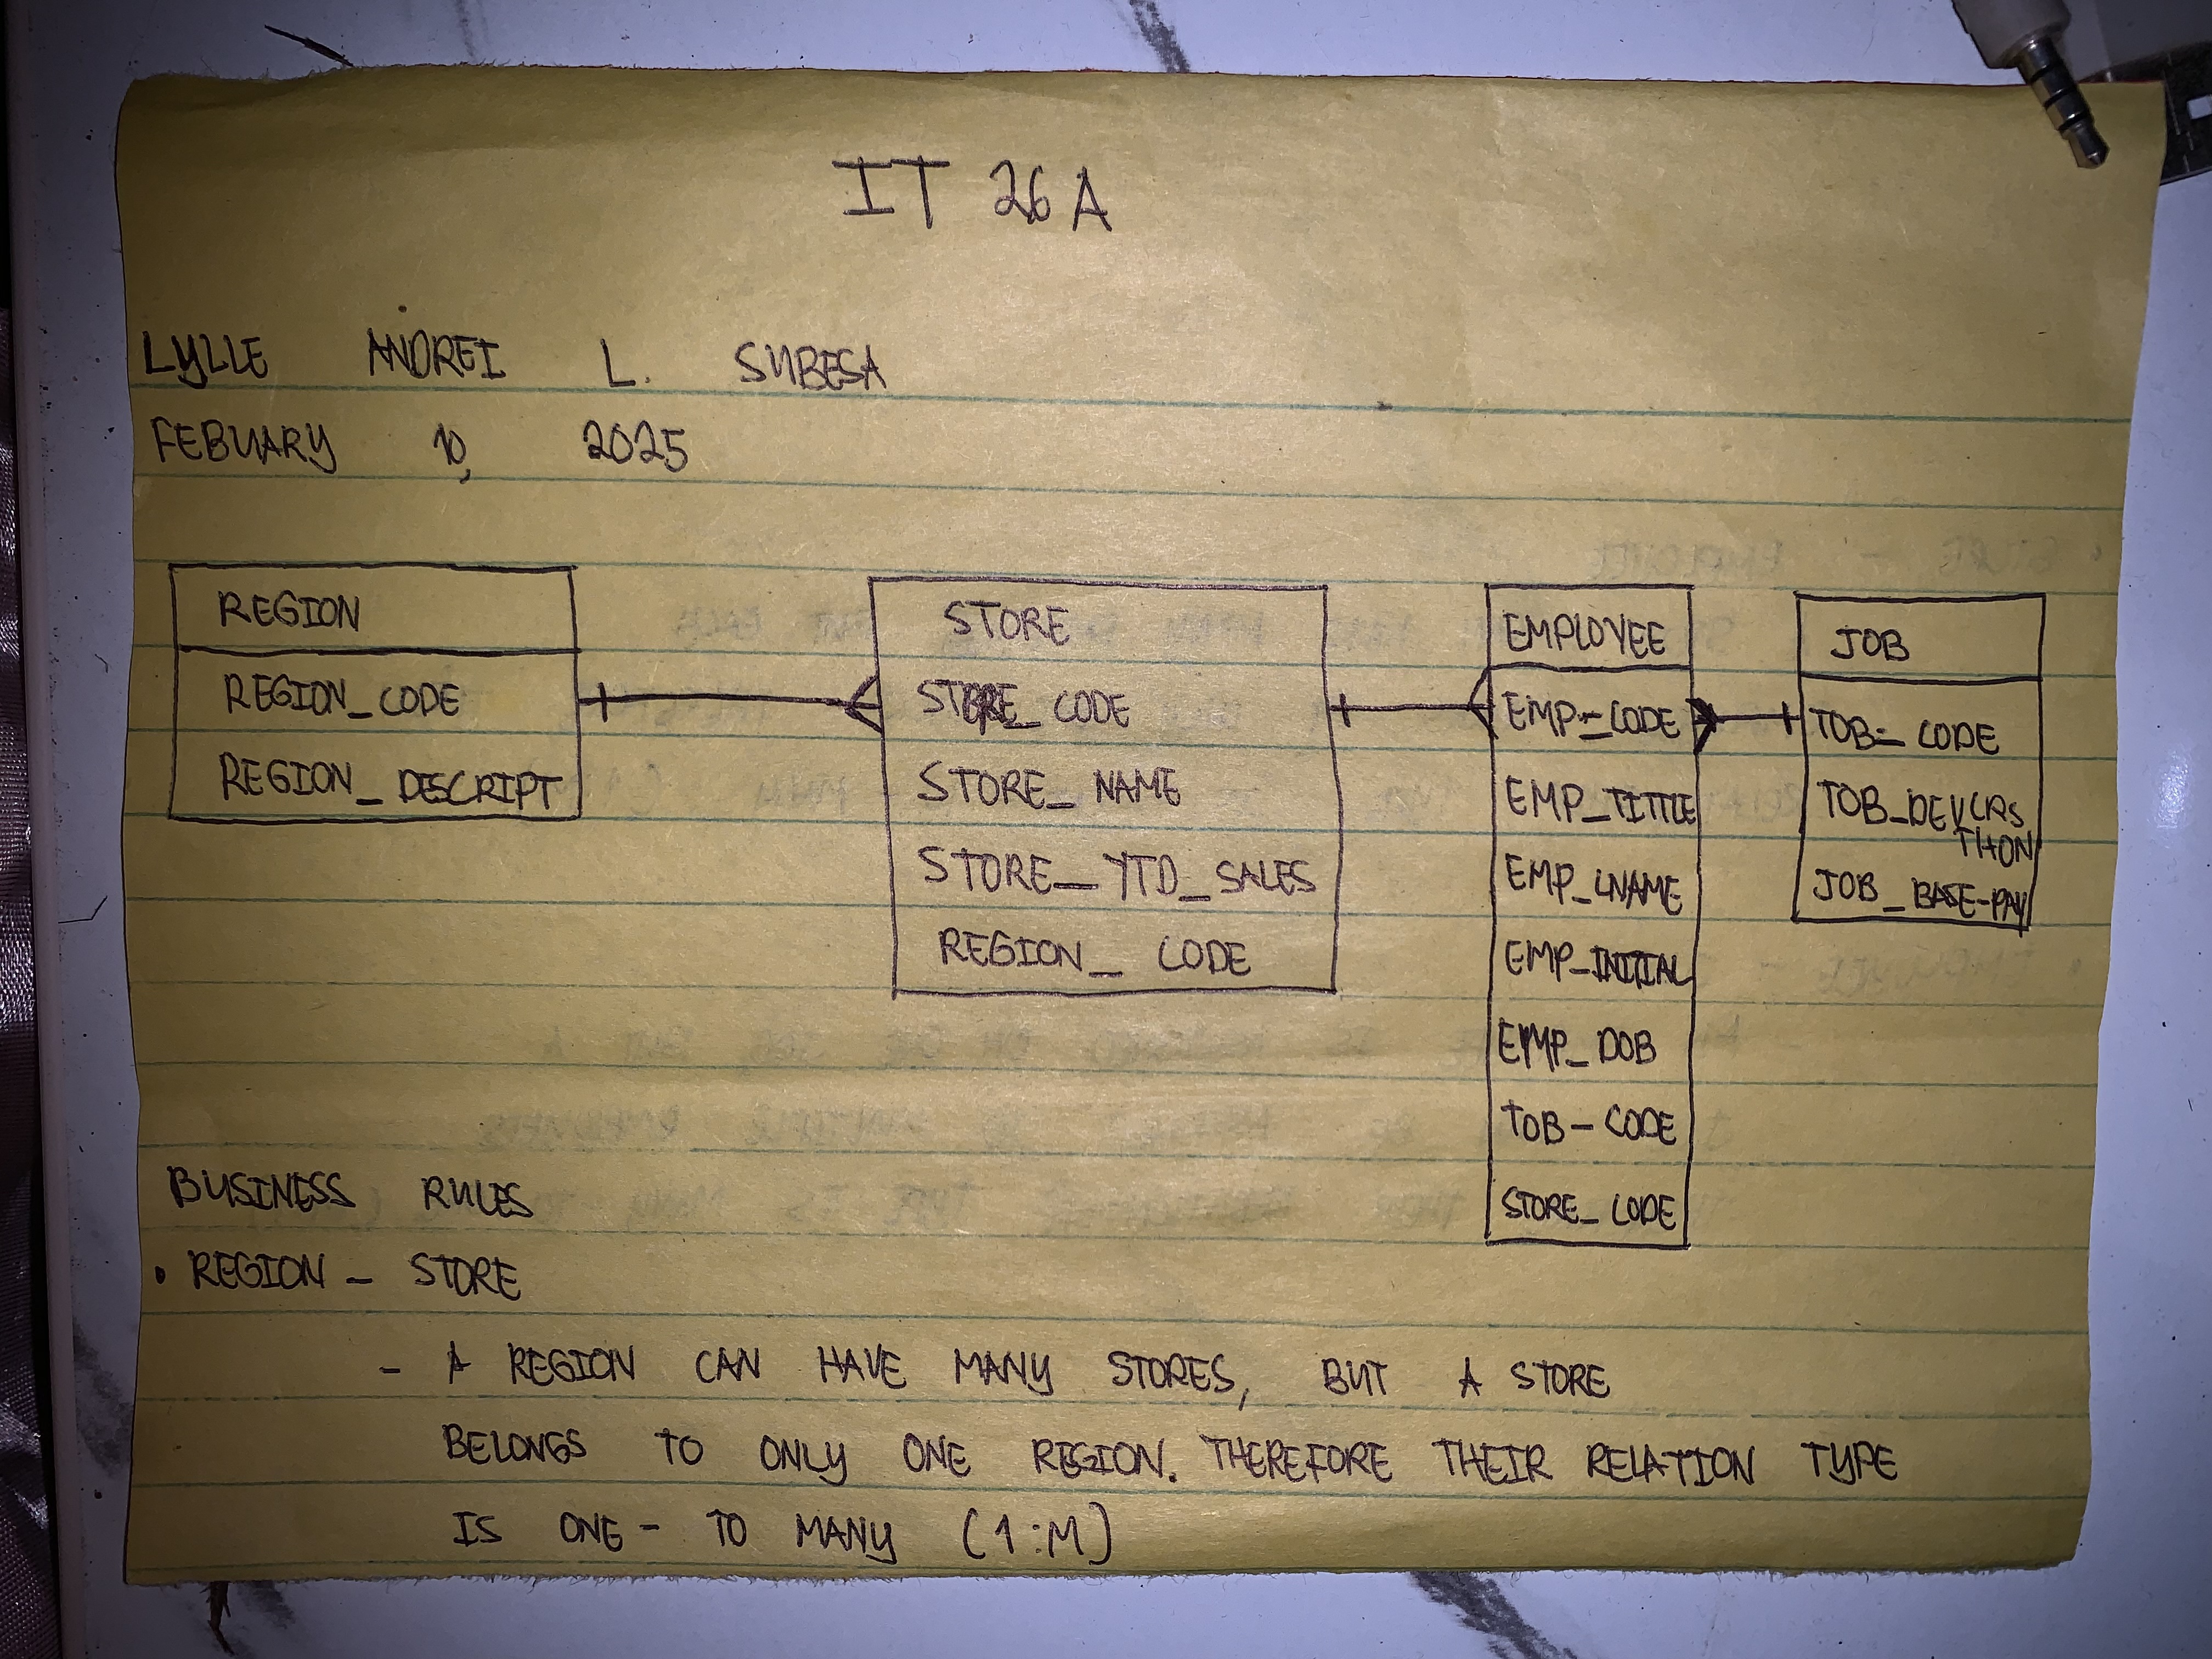 IT 26 A
LYLLE ANDREI L. SUBESA
FEBUARY 10, 2025
REGION
REGION_CODE
REGION_DESCRIPT
STORE
STORE_ CODE
STORE_ NAME
STORE_ YTD_SALES
REGION_ CODE
EMPLOYEE
EMP_CODE
EMP_TITTLE
EMP_LNAME
EMP_INITIAL
EMP_DOB
TOB-CODE
STORE_CODE
JOB
TOB_ CODE
JOB_BASE-PAY
BUSINESS RULES
• REGION - STORE
- A REGION CAN HAVE MANY STORES, BUT A STORE
BELONGS TO ONLY ONE REGION. THEREFORE THEIR RELATION TYPE
IS ONE-TO MANY (1:M)